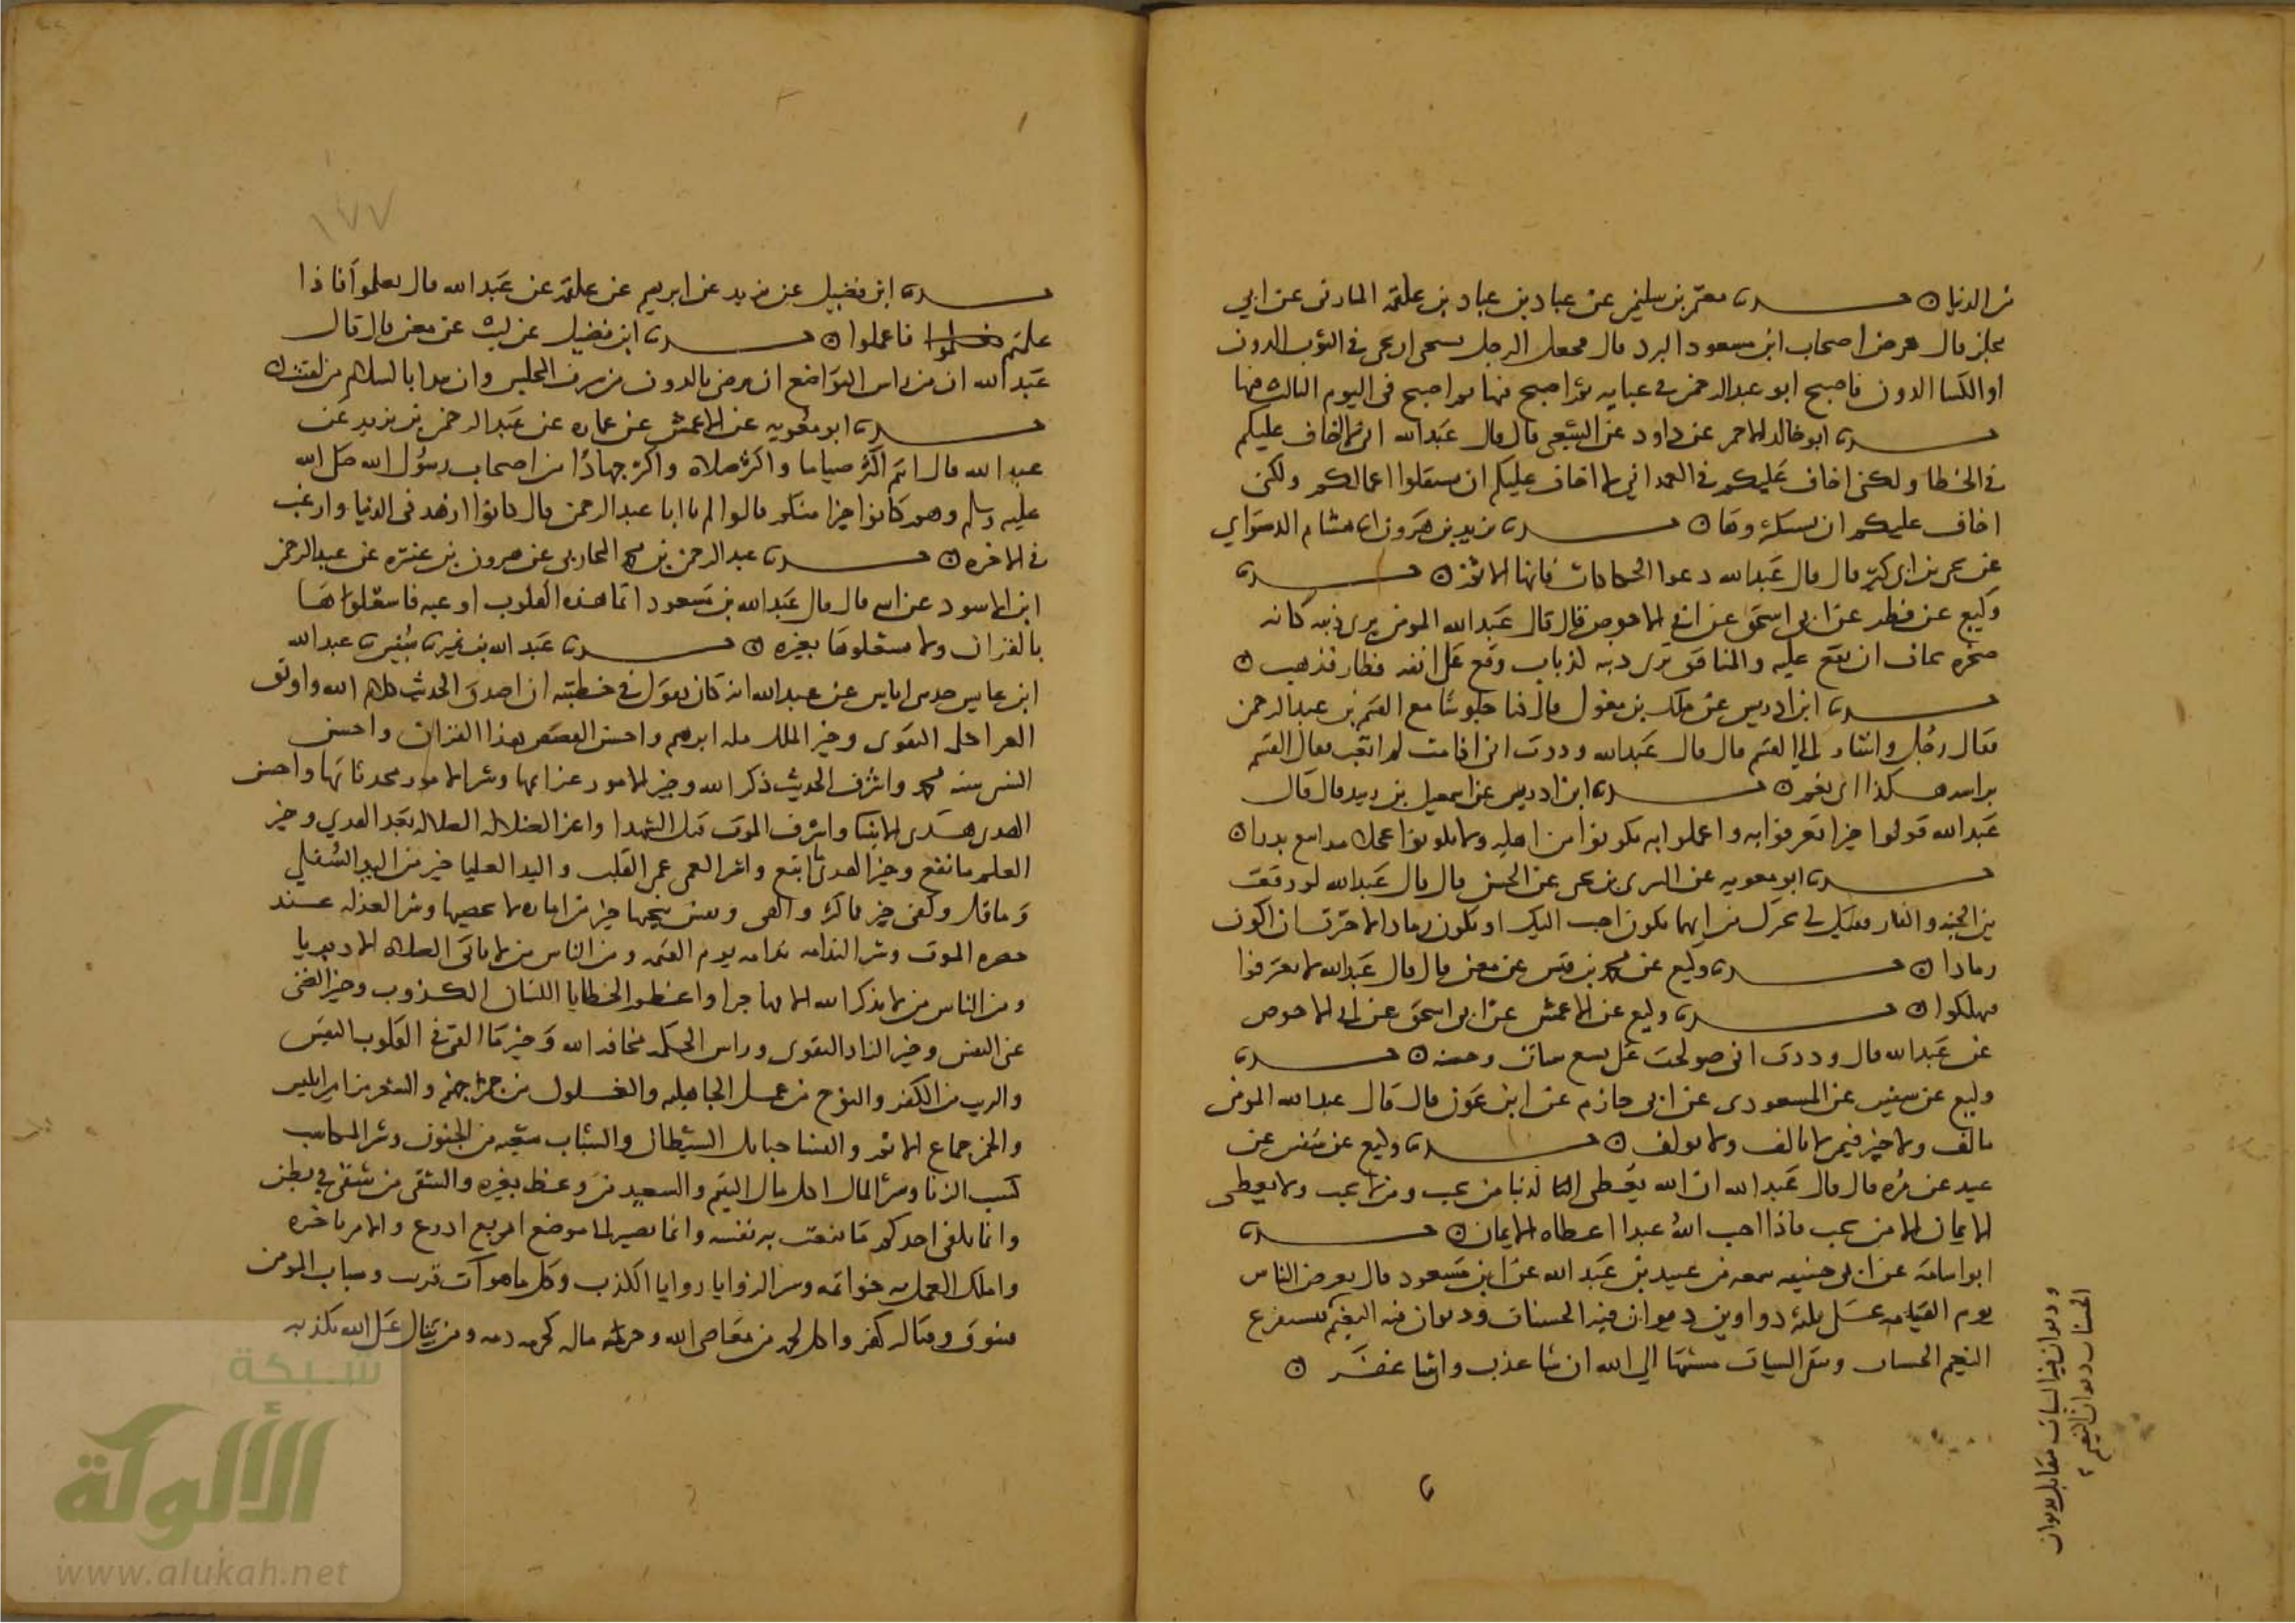 من الدنيا ۝ حدثنا معتمر بن سليمن عن عباد بن عباد بن علقمة المازني عن ابي
مجلز قال عرض اصحاب ابن مسعود البرد قال فجعل الرجل يستحي ان يجئ في الثوب الدون
او الكسا الدون فاصبح ابو عبد الرحمن في عباية ثم اصبح فيها ثم اصبح في اليوم الثالث فيها
حدثنا ابو خالد الاحمر عن داود عن الشعبي قال قال عبد الله اني لا اخاف عليكم
في الخطا ولكن اخاف عليكم في العمد اني لا اخاف عليكم ان تستقلوا اعمالكم ولكن
اخاف عليكم ان تستكثروها ۝ حدثنا يزيد بن هرون انا هشام الدستواي
عن يحيى بن ابي كثير قال قال عبد الله دعوا الحكاكات فانها الاثم ۝ حدثنا
وكيع عن فطر عن ابي اسحق عن ابي الاحوص قال قال عبد الله المومن يرى ذنبه كانه
صخرة يخاف ان تقع عليه والمنافق يرى ذنبه كذباب وقع على انفه فطار فذهب ۝
حدثنا ابن ادريس عن ملك بن مغول قال كنا جلوسا مع القسم بن عبد الرحمن
فقال رجل واشار الى القسم قال قال عبد الله وددت اني اذا مت لم ابعث فقال القسم
براسه هكذا اي نعم ۝ حدثنا ابن ادريس عن اسمعيل بن قال قال
عبد الله قولوا خيرا تعرفوا به واعملوا به تكونوا من اهله ولا تكونوا عجلا مذاييع بذرا ۝
حدثنا ابو معوية عن السري بن يحيى عن الحسن قال قال عبد الله لو وقفت
بين الجنة والنار فقيل لي نخيرك من ايهما تكون احب اليك او تكون رمادا لاخترت ان اكون
رمادا ۝ حدثنا وكيع عن محمد بن قيس عن معن قال قال عبد الله لا تفترقوا
فتهلكوا ۝ حدثنا وكيع عن الاعمش عن ابي اسحق عن ابي الاحوص
عن عبد الله قال وددت اني صولحت على تسع سيات وحسنة ۝ حدثنا
وكيع عن سفين عن المسعودي عن ابي حازم عن ابن عون قال قال عبد الله المومن
مالف ولا خير فيمن لا يالف ولا يولف ۝ حدثنا وكيع عن سفين عن
عن مرة قال قال عبد الله ان الله يعطي الدنيا من يحب ومن لا يحب ولا يعطي
الايمان الا من يحب فاذا احب الله عبدا اعطاه الايمان ۝ حدثنا
ابو اسامة عن ابي حنيفة سمعه من عبيد بن عبد الله عن ابن مسعود قال يعرض الناس
يوم القيامة على ثلثة دواوين ديوان فيه الحسنات وديوان فيه النعيم فيستفرغ
النعيم الحسنات وتبقى السيات مشيتها الى الله ان شا عذب وان شا غفر ۝
وديوان فيه السيات فيقابل بديوان
الحسنات ديوان النعيم
١٧٧
حدثنا ابن فضيل عن يزيد عن ابرهيم عن علقمة عن عبد الله قال تعلموا فاذا
علمتم فاعملوا ۝ حدثنا ابن فضيل عن ليث عن معن قال قال
عبد الله ان من راس التواضع ان ترضى بالدون من شرف المجلس وان تبدا بالسلام من لقيت ۝
حدثنا ابو معوية عن الاعمش عن عمارة عن عبد الرحمن بن يزيد عن
عبد الله قال انتم اكثر صياما واكثر صلاة واكثر جهادا من اصحاب رسول الله صلى الله
عليه وسلم وهم كانوا خيرا منكم قالوا لم يا ابا عبد الرحمن قال كانوا ازهد في الدنيا وارغب
في الاخرة ۝ حدثنا عبد الرحمن بن محمد المحاربي عن هرون بن عنترة عن عبد الرحمن
ابن الاسود عن ابيه قال قال عبد الله بن مسعود انما هذه القلوب اوعية فاشغلوها
بالقران ولا تشغلوها بغيره ۝ حدثنا عبد الله بن نمير نا سفين نا عبد الله
ابن عابس حدثني اياس عن عبد الله انه كان يقول في خطبته ان اصدق الحديث كلام الله واوثق
العرا كلمة التقوى وخير الملل ملة ابرهيم واحسن القصص هذا القران واحسن
السنن سنة محمد واشرف الحديث ذكر الله وخير الامور عزايمها وشر الامور محدثاتها واحسن
الهدي هدي الانبيا واشرف الموت قتل الشهدا واغر الضلالة الضلالة بعد الهدي وخير
العلم ما نفع وخير الهدي ما اتبع وشر العمى عمى القلب واليد العليا خير من اليد السفلى
وما قل وكفى خير مما كثر والهى ونفس تنجيها خير من امارة لا تحصيها وشر العذلة عند
حضرة الموت وشر الندامة ندامة يوم القيمة ومن الناس من لا ياتي الصلاة الا دبريا
ومن الناس من لا يذكر الله الا مهاجرا واعظم الخطايا اللسان الكذوب وخير الغنى
غنى النفس وخير الزاد التقوى وراس الحكمة مخافة الله وخير ما القي في القلوب اليقين
والريب من الكفر والنوح من عمل الجاهلية والغلول من جمر جهنم والشعر من مزامير ابليس
والخمر جماع الاثم والنسا حبايل الشيطان والشباب شعبة من الجنون وشر المكاسب
كسب الزنا وشر المال اكل مال اليتيم والسعيد من وعظ بغيره والشقي من شقي في بطن
وانما يكفي احدكم ما قنعت به نفسه وانما يصير الى موضع اربع اذرع والامر باخره
واملك العمل به خواتمه وشر الروايا روايا الكذب وكل ما هو آت قريب وسباب المومن
فسوق وقتاله كفر واكل لحمه من معاصي الله وحرمة ماله كحرمة دمه ومن يتال على الله يكذبه
شبكة
الألوكة
www.alukah.net